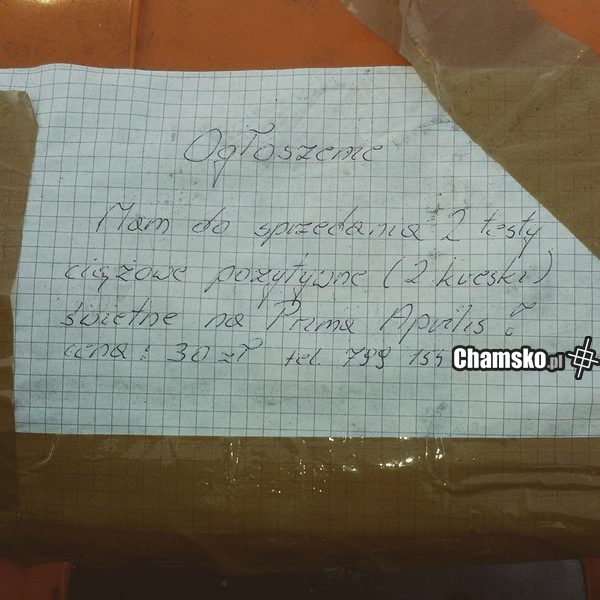 Ogłoszenie
Mam do sprzedania 2 testy
ciążowe pozytywne (2 kreski)
świetne na Prima Aprilis!
cena: 30 zł tel. 799 155
Chamsko.pl